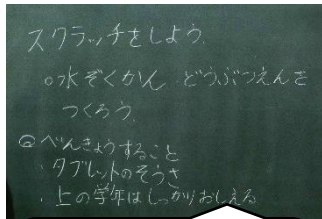 スクラッチをしよう。
○水ぞくかん どうぶつえんを
つくろう。
◎べんきょうすること
・タブレットのそうさ
・上の学年はしっかりおしえる